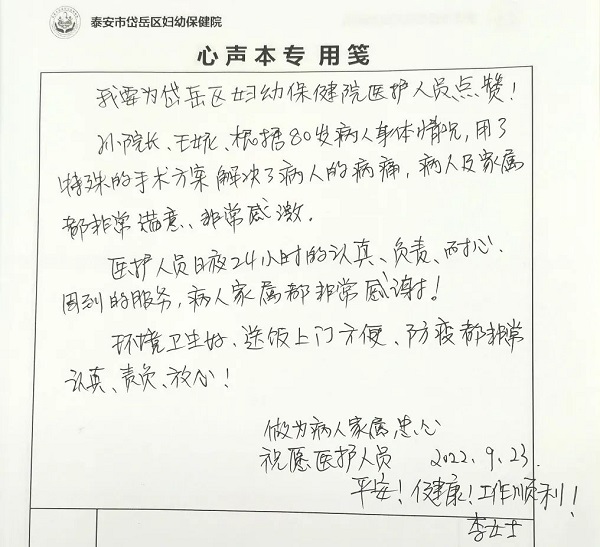 泰安市岱岳区妇幼保健院
心声本专用笺
我要为岱岳区妇幼保健院医护人员点赞！
孙院长、王斌、根据80岁病人身体情况，用了
特殊的手术方案解决了病人的病痛，病人及家属
都非常满意、非常感激．
医护人员日夜24小时的认真、负责、耐心、
周到的服务，病人家属都非常感谢！
环境卫生好、送饭上门方便、防疫都非常
认真、责负、放心！
做为病人家属忠心
祝愿医护人员 2022.9.23.
平安！健康！工作顺利！
李女士